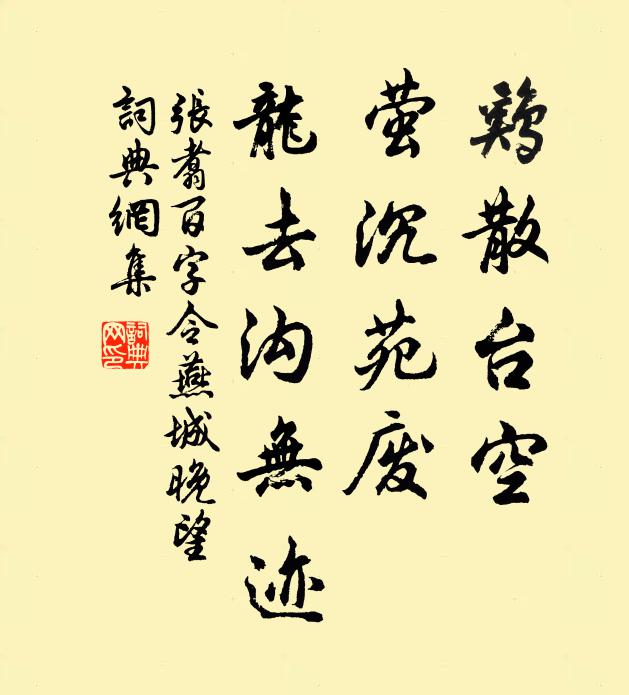 鷄散台空
萤沉苑废
龍去沟無迹
張翥百字令蕪城晚望
詞典網集
詞典网印